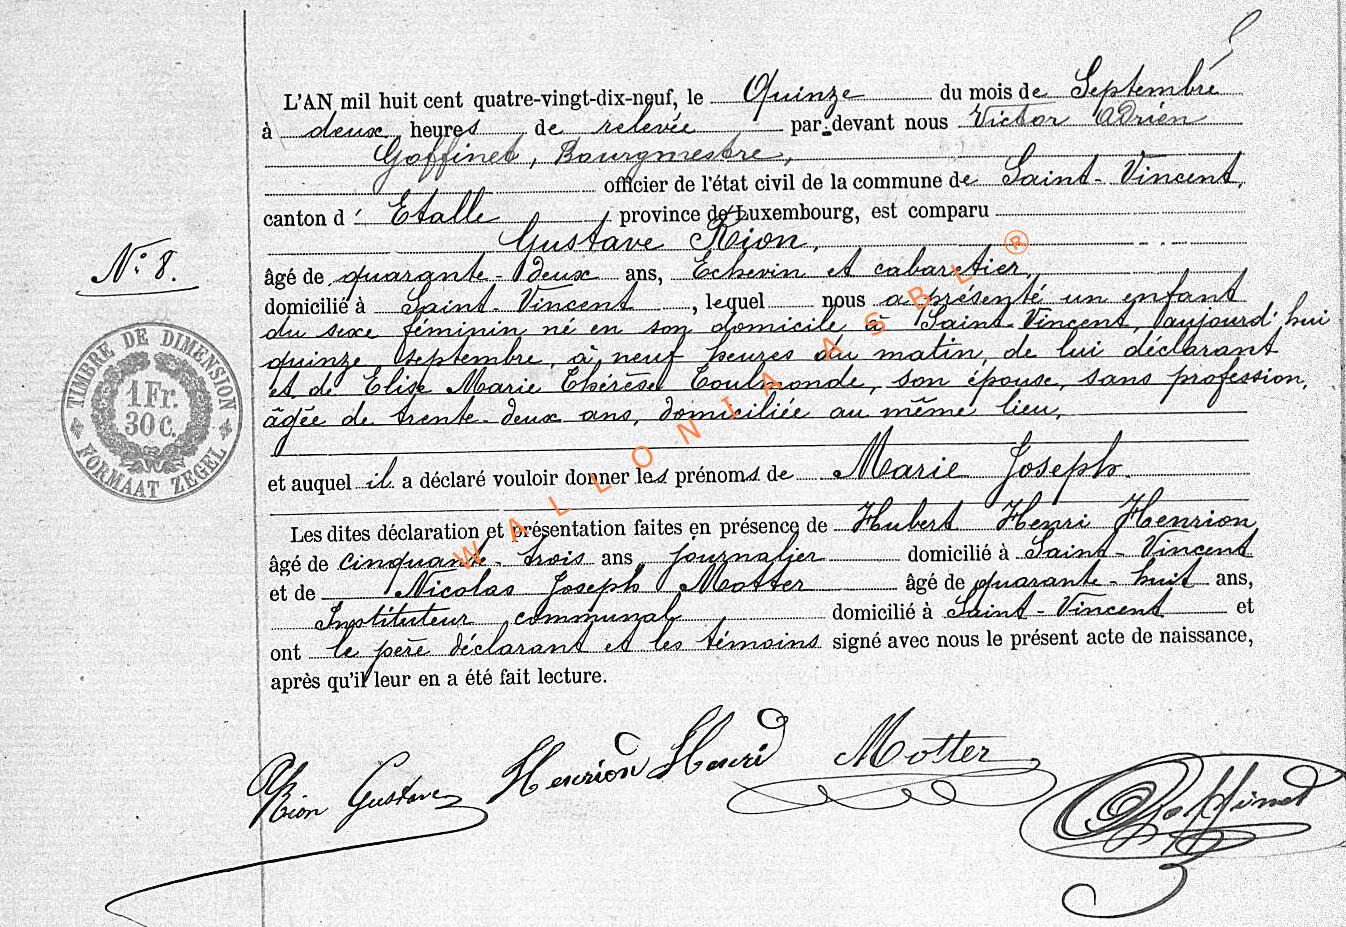 L'AN mil huit cent quatre-vingt-dix-neuf, le Quinze du mois de Septembre
à deux heures de relevée par-devant nous Victor Adrien
Goffinet, Bourgmestre,
officier de l'état civil de la commune de Saint-Vincent,
canton d' Etalle province de Luxembourg, est comparu
Gustave Rion,
N° 8.
âgé de quarante-deux ans, Echevin et cabaretier,
domicilié à Saint-Vincent, lequel nous a présenté un enfant
du sexe féminin né en son domicile à Saint-Vincent, aujourd'hui
quinze septembre, à neuf heures du matin, de lui déclarant
et de Elise Marie Thérèse Toulmonde, son épouse, sans profession,
âgée de trente-deux ans, domiciliée au même lieu,
TIMBRE DE DIMENSION
1 Fr.
30 C.
FORMAAT ZEGEL
et auquel il a déclaré vouloir donner les prénoms de Marie Joseph.
Les dites déclaration et présentation faites en présence de Hubert Henri Henrion,
âgé de cinquante-trois ans, journalier domicilié à Saint-Vincent
et de Nicolas Joseph Motter âgé de quarante-huit ans,
Instituteur communal domicilié à Saint-Vincent et
ont le père déclarant et les témoins signé avec nous le présent acte de naissance,
après qu'il leur en a été fait lecture.
WALLONIA ASBL ®
Rion Gustave Henrion Henri Motter Goffinet